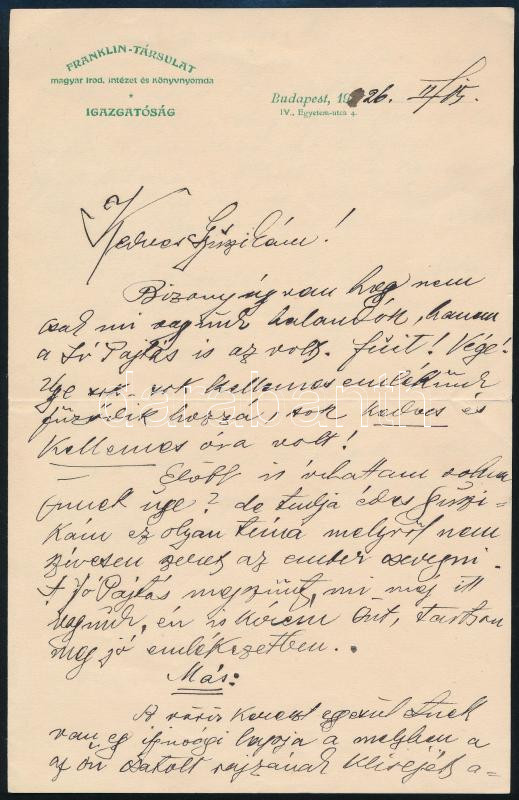 FRANKLIN-TÁRSULAT
magyar irod. intézet és könyvnyomda
*
IGAZGATÓSÁG
Budapest, 1926. II/15.
IV., Egyetem-utca 4.
Kedves Gúzikám!
Bizony úgy van hogy nem
csak mi vagyunk halandók, hanem
a Jó Pajtás is az volt. fuit! Vége!
sok, sok kellemes emlékünk
fűződik hozzá, sok kedves és
kellemes óra volt!
Előbb is írhattam volna
Önnek ugye? de tudja édes Gúzi-
kám ez olyan téma melyről nem
szívesen szeret az ember csevegni.
A Jó Pajtás megszűnt, mi még itt
vagyunk, én is kérem Önt, tartson
meg jó emlékezetben.
Más:
A vörös kereszt egyesületnek
van egy ifjúsági lapja a melyben a
az ön csatolt rajzának kliséjét a-
darabanth